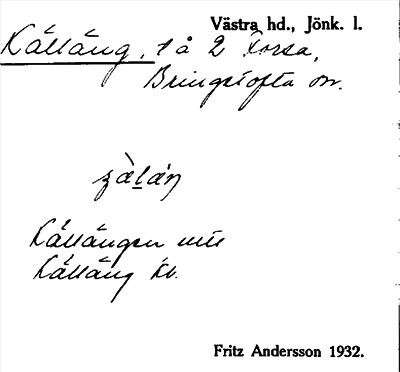 Västra hd., Jönk. l.
Källäng, t å 2 Korsa,
Bringetofta sn.
Källängen mtl
Källäng kb.
Fritz Andersson 1932.